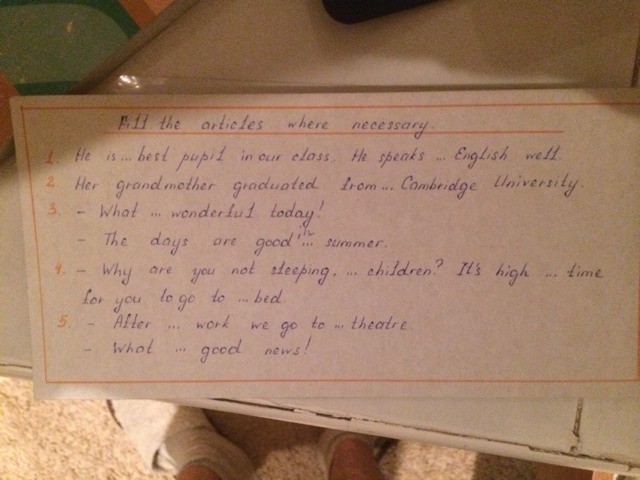 Fill the articles where necessary.
1. He is ... best pupil in our class. He speaks ... English well.
2. Her grandmother graduated from ... Cambridge University.
3. - What ... wonderful today!
- The days are good in ... summer.
4. - Why are you not sleeping, ... children? It's high ... time
for you to go to ... bed.
5. - After ... work we go to ... theatre.
- What ... good news!